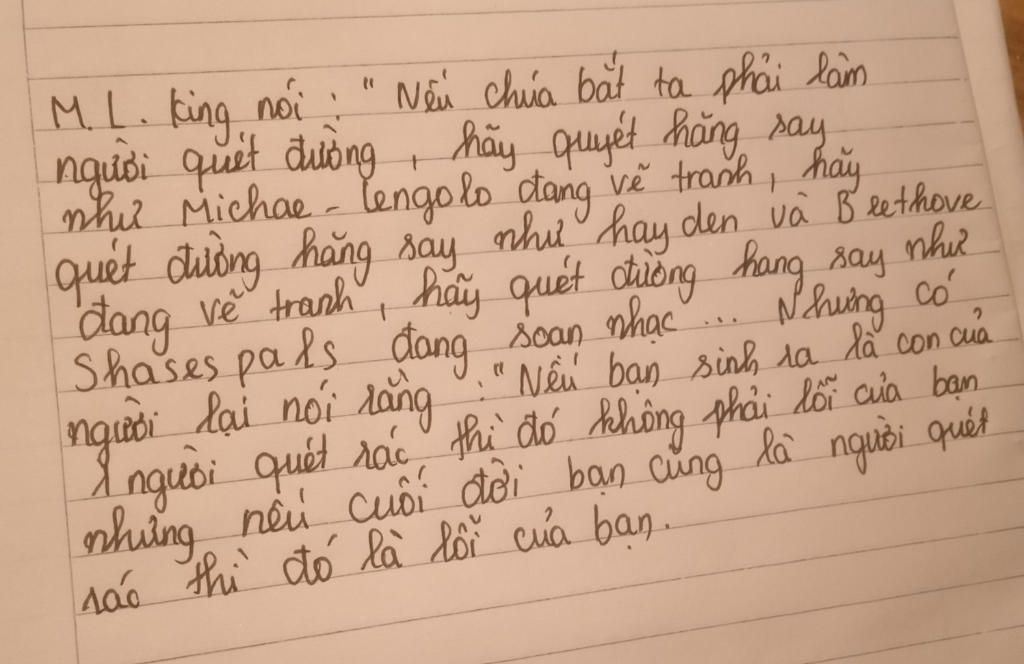 M. L. King nói : " Nếu chúa bắt ta phải làm
người quét đường, hãy quyét hăng say
như Michae - lengolo đang vẽ tranh, hãy
quét đường hăng say như hay den và Beethove
đang vẽ tranh, hãy quét đường hang say như
Shases pals đang soan nhạc ... Nhưng có
người lại nói rằng : " Nếu bạn sinh ra là con của
1 người quét rác thì đó không phải lỗi của bạn
nhưng nếu cuối đời bạn cũng là người quét
rác thì đó là lỗi của bạn.